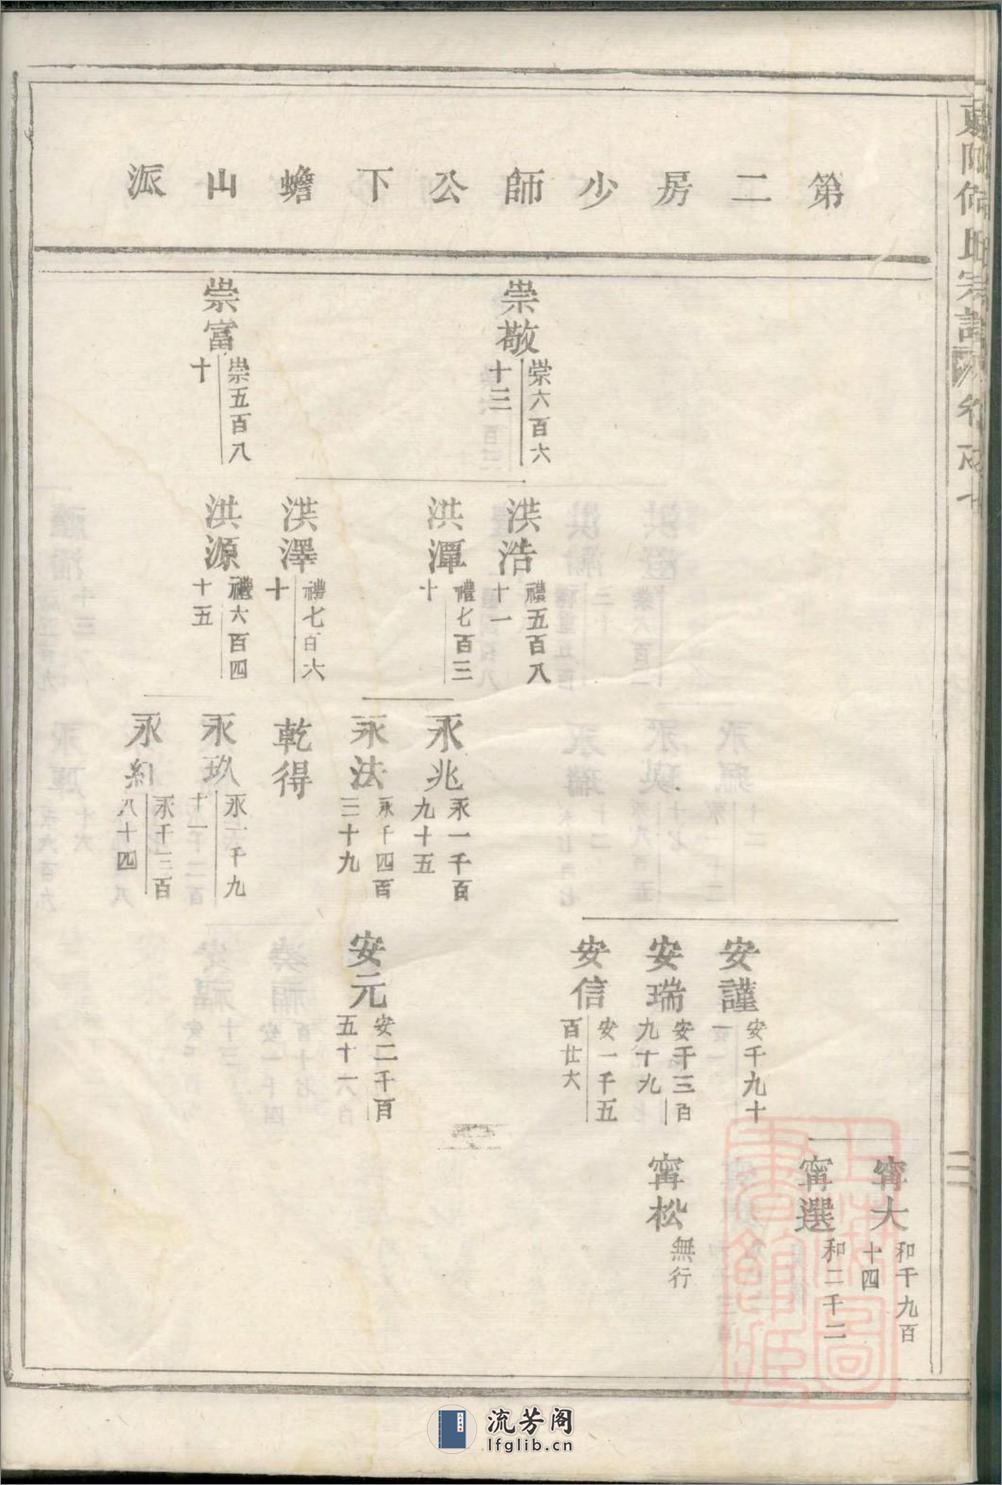 第二房少師公下蟾山派
崇敬
崇六百六
十三
崇富
崇五百八
十
洪浩
禮五百八
十一
洪潭
禮七百三
十
洪澤
禮七百六
十
洪源
禮六百四
十五
永兆
永一千百
九十五
永法
永千四百
三十九
乾得
永玖
永一千九
十一
永紅
永千三百
八十四
安謹
安千九十
一
安瑞
安千三百
九十九
安信
安一千五
百廿六
安元
安二千百
五十一
甯大
和千九百
十四
甯選
和二千二
甯松
無行
二
流芳阁
lfglib.cn